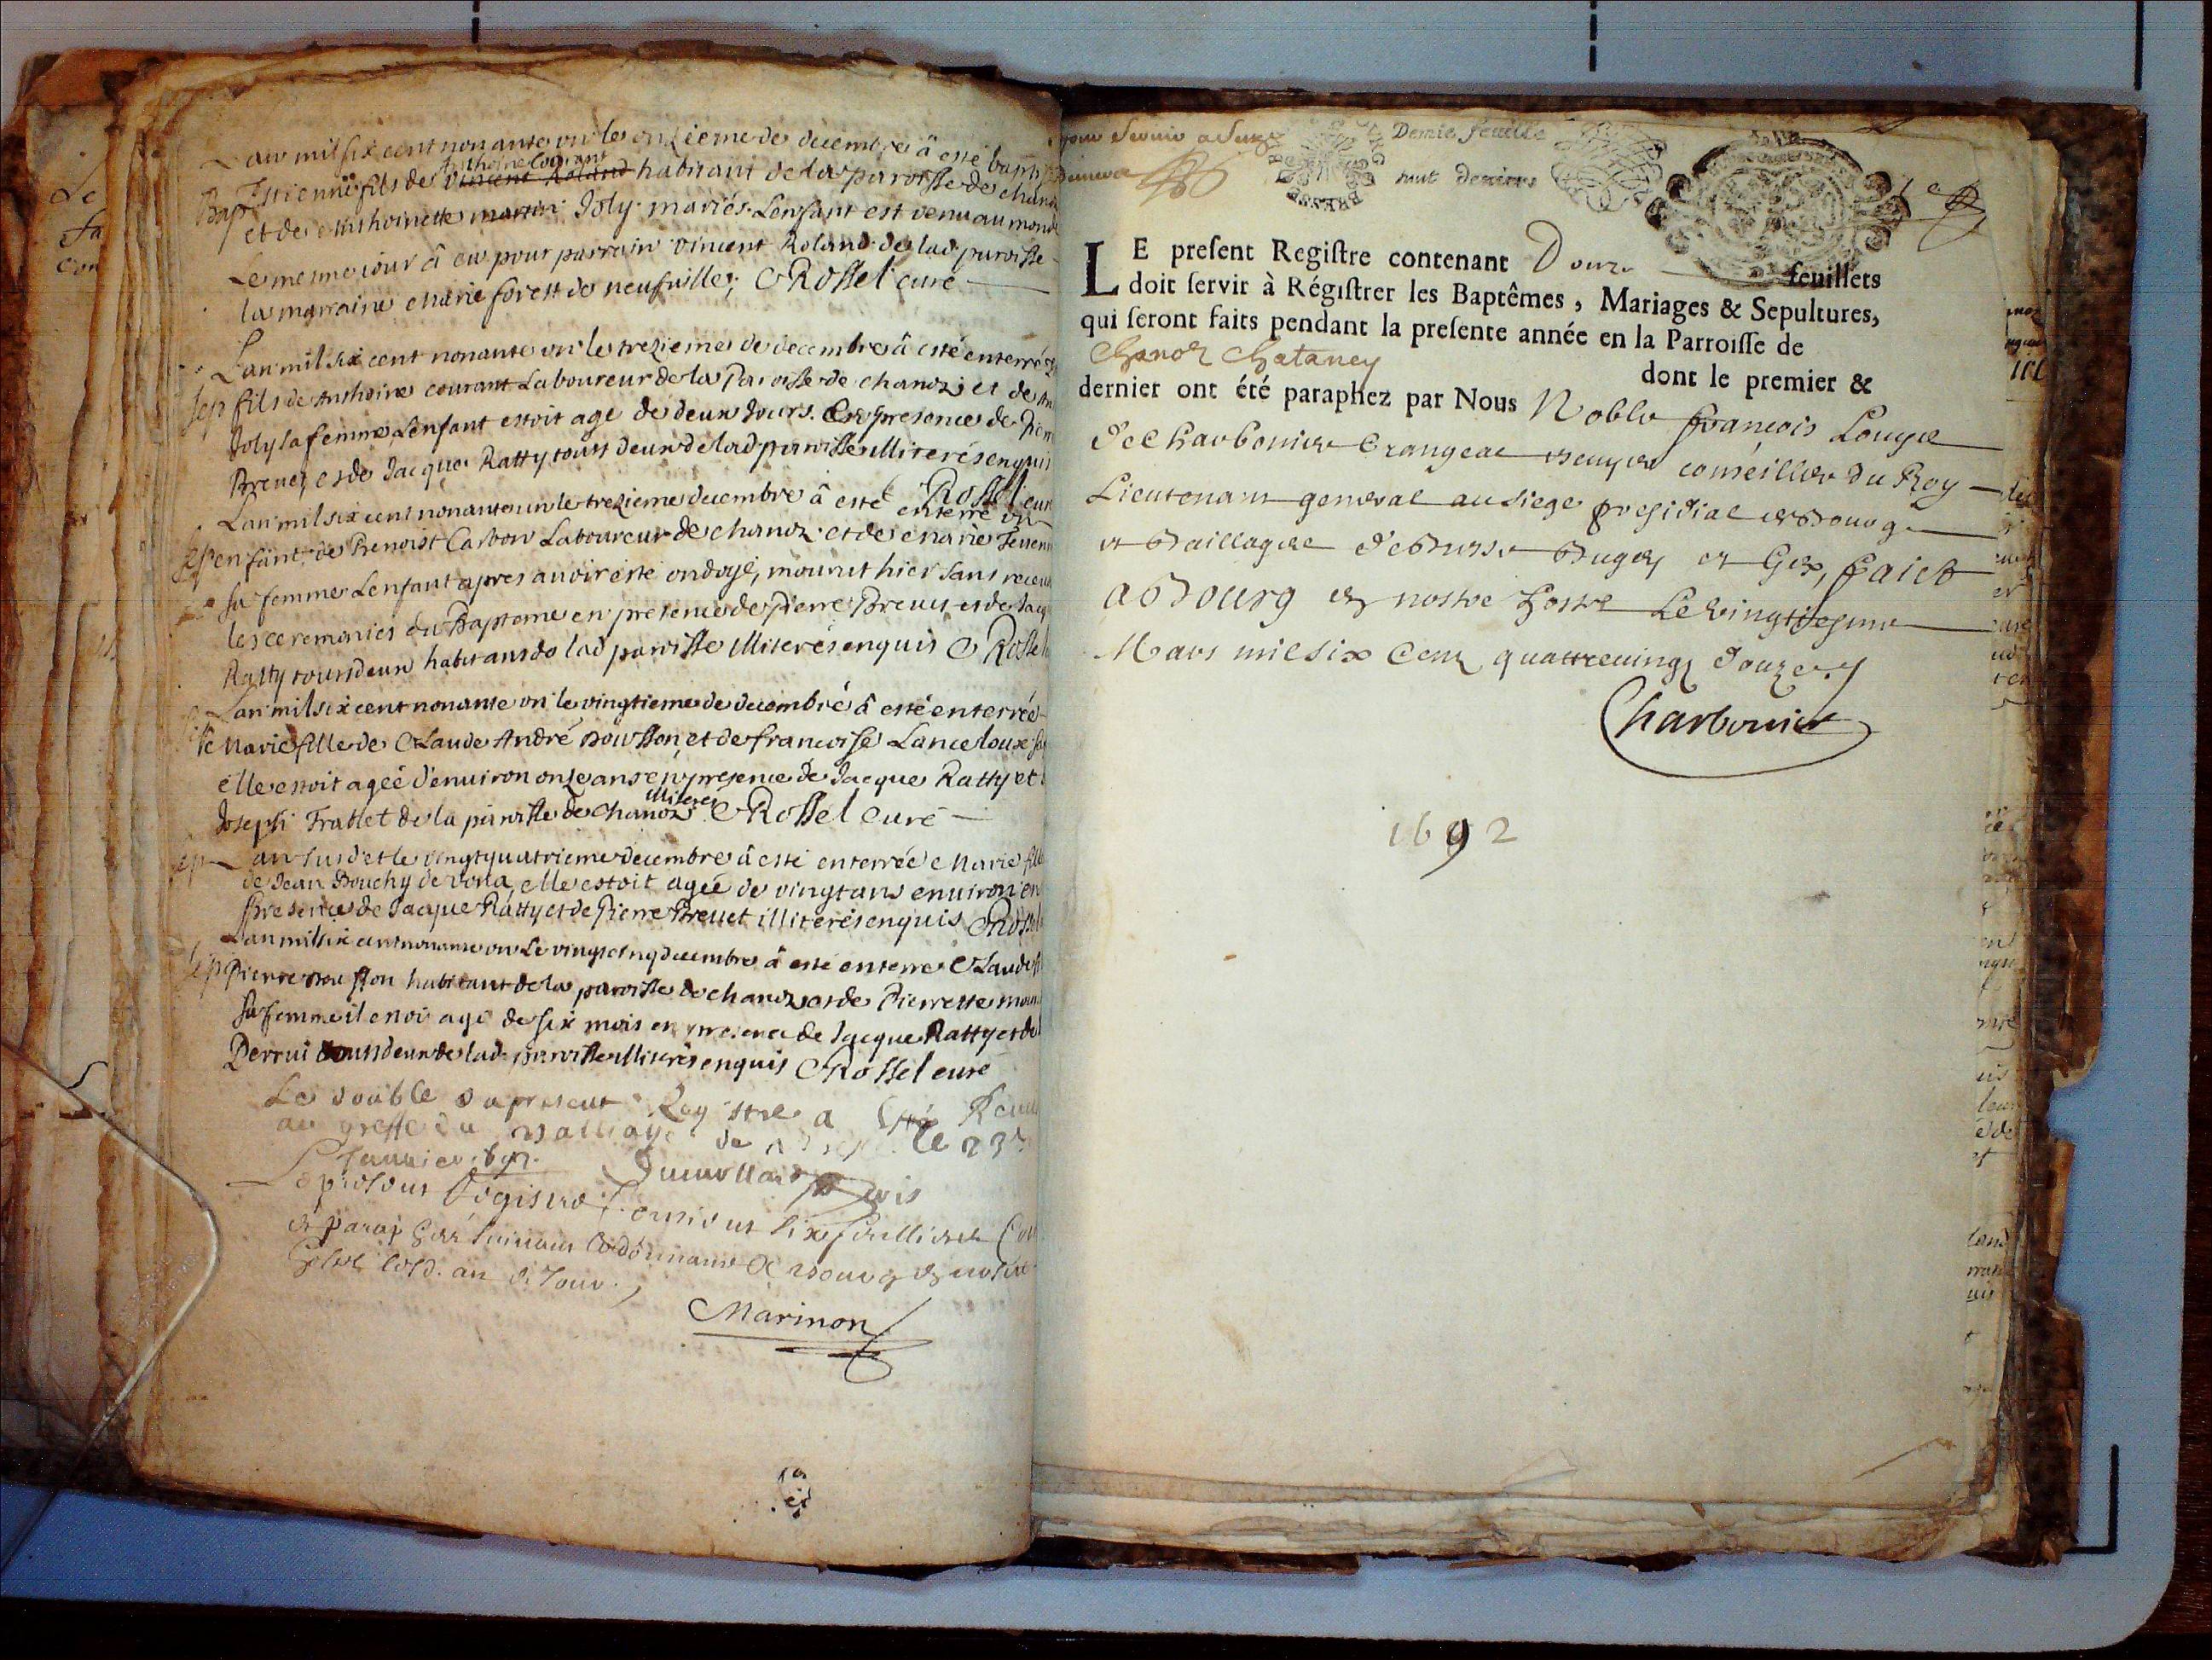 Lan mil six cent nonante un le onzieme de decembre â esté bapt
Anthoine Courant
Bap Estienne fils de vincent Roland habitant de la paroisse de chano
et de Anthoinette martin Joly mariés. Lenfant est venu au monde
Le meme iour â eu pour parrain vincent Roland de lad paroisse
la marraine Marie forest de neufuille; Rossel curé
Lan mil six cent nonante un le trezieme de decembre â esté enterré
sep fils de Anthoine courant Laboureur de la Paroisse de chanoz et de An
Joly sa femme Lenfant estoit agé de deux Jours. En presence de Pierre
Breuet et de Jacque Ratty tous deux de lad paroisse illiterés enquis
Rossel curé
Lan mil six cent nonante un le trezieme decembre â esté enterré un
sep enfant de Benoist Carbon Laboureur de chanoz et de Marie
sa femme Lenfant apres auoir esté ondoyé, mourut hier sans receu
les ceremonies du Bapteme en presence de Pierre Breuet et de Jacq
Ratty tous deux habitans de lad paroisse illiterés enquis Rossel
Lan mil six cent nonante un le vingtieme de decembre â esté enterrée
Marie fille de Claude André Bouillon, et de francoise Lanceloux sa
elle estoit agée d'enuiron onze ans en presence de Jacque Ratty et
illiteres
Joseph Frablet de la paroisse de Chanoz Rossel Curé
sep Lan susd et le vingt quatrieme decembre â esté enterrée Marie fille
de Jean Bouchy de vona, elle estoit agée de vingt ans enuiron en
presence de Jacque Ratty et de Pierre Breuet illiterés enquis Rossel
Lan mil six cent nonante un Le vingt cinq decembre â esté enterré Claude
sep Pierre habitant de la paroisse de chanoz et de Pierrette
sa femme il estoit agé de six mois en presence de Jacque Ratty et de
Perrui tous deux de lad paroisse illiterés enquis Rossel curé
Le double du present Registre a esté Remis
au greffe du Balliage de le 23e
Januier 1692.
Le present Registre contenant six feuillets
et paraphé suiuant Lordonnance A Bourg en nostre
hostel lesd. an et Jour.
Marinon
pour Seruir a
Demie feuille
huit deniers
LE present Registre contenant Douze feuillets
doit servir à Régistrer les Baptêmes, Mariages & Sepultures,
qui seront faits pendant la presente année en la Parroisse de
Chanoz Chataney dont le premier &
dernier ont été paraphez par Nous Noble francois Louyse
de Charbonier Crangeac escuyer conseiller du Roy
Lieutenant general au siege presidial de Bourg
et Baillagere de Bresse Bugey et Gex, faict
a Bourg en nostre hostel Le vingtiesme
Mars mil six Cent quattreuingt douze
Charbonier
1692